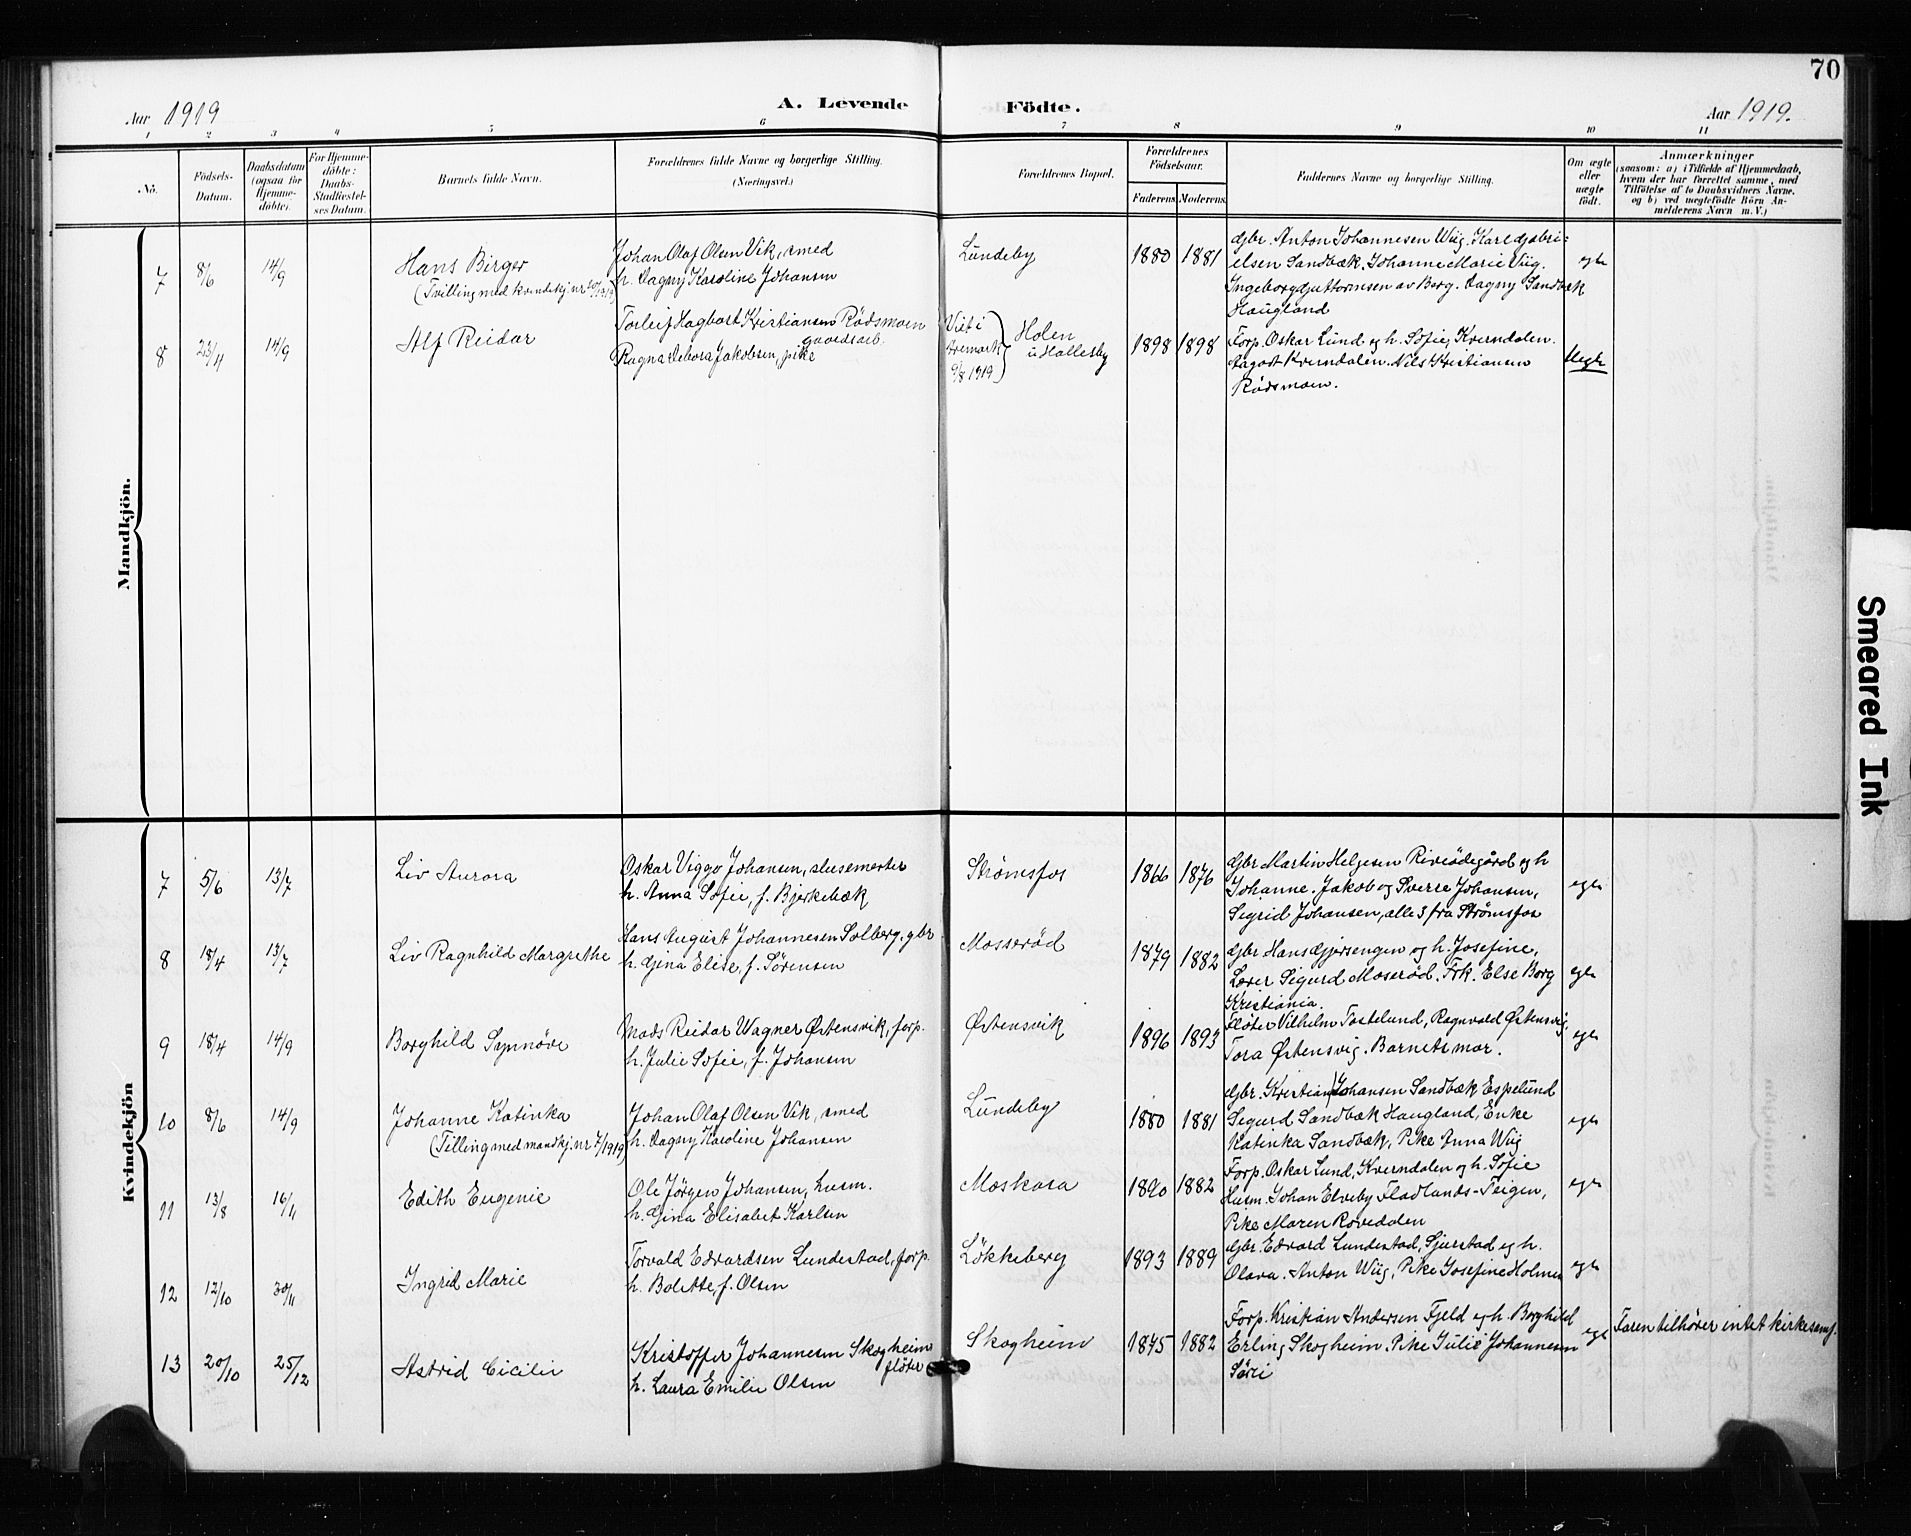 70
Aar 1919
A. Levende
Födte.
Aar 1919.
1 2 3 4 5 6 7 8 9 10 11
No.
Födsels-
Datum.
Daabsdatum
(ogsaa for
Hjemme-
döbte).
For Hjemme-
döbte:
Daabs-
Stadfæstel-
ses Datum.
Barnets fulde Navn.
Forældrenes fulde Navne og borgerlige Stilling.
(Næringsvei.)
Forældrenes Bopæl.
Forældrenes
Födselsaar.
Faderens. Moderens.
Faddernes Navne og borgerlige Stilling.
Om ægte
eller
uægte
födt.
Anmærkninger
(saasom: a) i Tilfælde af Hjemmedaab,
hvem der har forrettet samme, med
Tilföielse af to Daabsvidners Navne,
og b) ved uægtefödte Börn An-
melderens Navn m. V.)
Mandkjön.
7 8/6 14/9
Hans Birger
(Tvilling med kvindekj. nr 10/1919)
Johan Olaf Olsen Vik, smed
h. Dagny Karoline Johansen
Lundeby
1880 1881
Gbr. Anton Johannesen Wiig. Karl Gabri-
elsen Sandbæk. Johanne Marie Wiig.
Ingeborg Guttormsen av Berg. Dagny Sandbæk
Haugland
egte
8 23/4 14/9
Alf Reidar
Torleif Hagbart Kristiansen Rödsmoen
gaardsarb.
Ragna Debora Jakobsen, pike
Viet i
Aremark
9/8 1919)
Holen
u. Hallesby
1898 1898
Forp. Oskar Lund og h. Sofie, Kverndalen.
Aagot Kverndalen. Nils Kristiansen
Rödsmoen.
Uegte
Kvindekjön
7 5/6 13/7
Liv Aurora
Oskar Viggo Johansen, slusemester
h. Anna Sofie, f. Bjerkebæk
Strømsfos
1866 1876
Gbr Martin Helgesen Riveödegård og h
Johanne. Jakob og Sverre Johansen,
Sigrid Johansen, alle 3 fra Strømsfos
egte
8 18/4 13/7
Liv Ragnhild Margrethe
Hans August Johannesen Solberg, gbr
h. Gina Elise, f. Sørensen
Mosserød
1879 1882
Gbr Hans Gjørsengen og h. Josefine,
Lærer Sigurd Moserød. Frk. Else Borg
Kristiania.
egte
9 18/4 14/9
Borghild Synnøve
Mads Reidar Wagner Østensvik, forp.
h. Julie Sofie, f. Johansen
Østensvik
1896 1893
Fløter Vilhelm Tostelund, Ragnvald Østensvig,
Tora Østensvig. Barnets mor.
egte
10 8/6 14/9
Johanne Katinka
(Tilling med mandkj. nr 7/1919)
Johan Olaf Olsen Vik, smed
h. Dagny Karoline Johansen
Lundeby
1880 1881
Gbr. Kristian Johansen Sandbæk Espelund
Sigurd Sandbæk Haugland, Enke
Katinka Sandbæk, Pike Anna Wiig
egte
11 13/8 16/11
Edith Eugenie
Ole Jørgen Johansen, husm.
h. Gina Elisabet Karlsen
Moskasa
1890 1882
Forp. Oskar Lund, Kverndalen og h. Sofie
Husm. Johan Elveby Fladlands-Teigen,
Pike Maren Rovedalen
egte
12 12/10 30/11
Ingrid Marie
Torvald Edvardsen Lundestad, forp.
h. Bolette, f. Olsen
Løkkeberg
1893 1889
Gbr. Edvard Lundestad, Sjurstad og h.
Olava. Anton Wiig, Pike Josefine Holmen
egte
13 20/10 25/12
Astrid Cicilie
Kristoffer Johannesen Skogheim
fløter
h. Laura Emilie Olsen
Skogheim
1875 1882
Forp. Kristian Andersen Fjeld og h. Borghild
Erling Skogheim. Pike Julie Johannesen
egte
Faren tilhører intet kirkesamf.
Smeared Ink